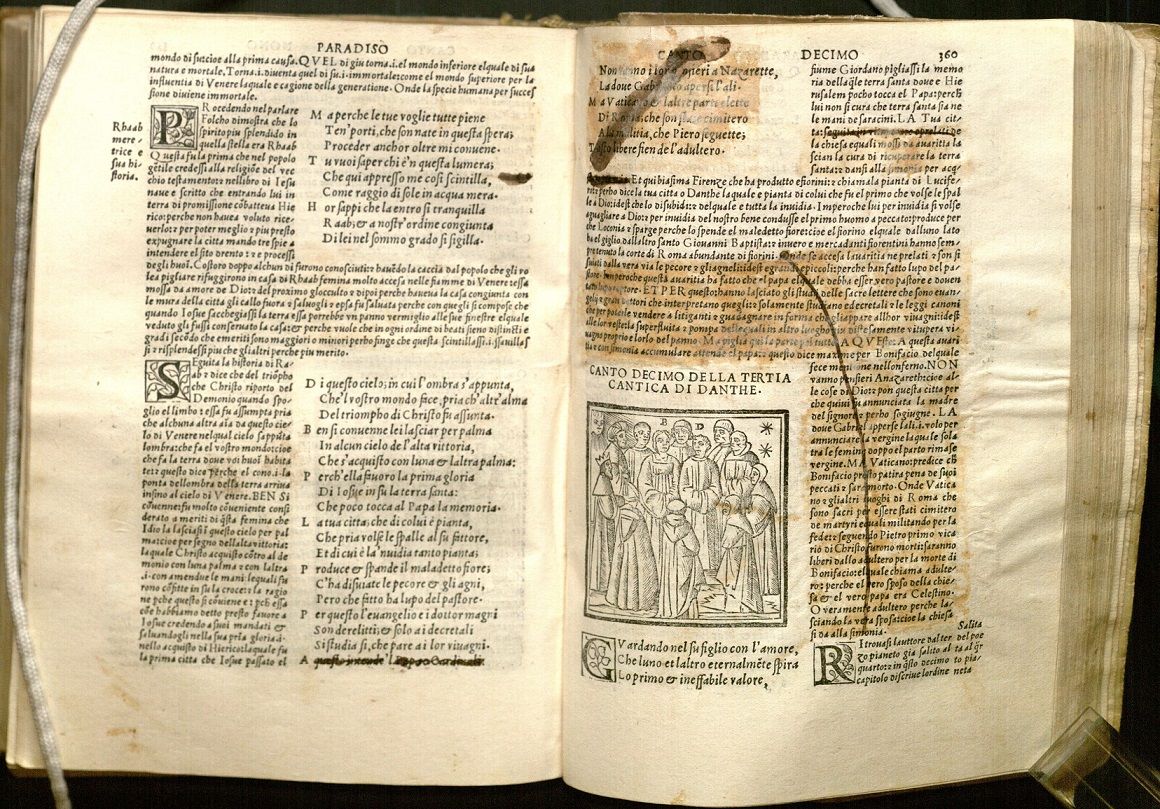 PARADISO
mondo di su: cioe alla prima causa. QVEL di giu torna. i. el mondo inferiore elquale di sua
natura e mortale. Torna. i. diuenta quel di su. i. immortale: come el mondo superiore per la
influentia di Venere laquale e cagione della generatione. Onde la specie humana per succes
sione diuiene immortale.
Rhaab
mere-
trice e
sua hi-
storia.
PRocedendo nel parlare
Folcho dimostra che lo
spirito piu splendido in
quella stella era Rhaab
Questa fu la prima che nel popolo
gẽtile credessi alla religiõe del vec
chio testamento: z nellibro di Iesu
naue e scritto che entrando lui in
terra di promissione cõbatteua Hie
rico: perche non haueua voluto rice-
uerlo: z per poter meglio z piu presto
expugnare la citta mando tre spie a
intendere el sito drento: z e processi
degli huoĩ. Costoro doppo alchun di furono conosciuti: z hauẽdo la caccia dal popolo che gli vo
lea pigliare rifuggirono in casa di Rhaab femina molto accesa nelle fiamme di Venere: z essa
mossa da amore de Dio: z del proximo gli occulto: z dipoi perche haueua la casa congiunta con
le mura della citta gli callo fuora: z saluogli: z epsa fu saluata perche con quegli si compose che
quando Iosue sacchegiassi la terra essa porrebbe vn panno vermiglio alle sue finestre elquale
veduto gli fussi conseruato la casa: & perche vuole che in ogni ordine di beati sieno distincti e
gradi secõdo che e meriti sono maggiori o minori perho finge che questa scintillassi. i. squillas
si: z risplendessi piu che gli altri perche piu merito.
M a perche le tue voglie tutte piene
Ten' porti, che son nate in questa spera;
Proceder anchor oltre mi conuene.
T u vuoi saper chi è'n questa lumera;
Che qui appresso me cosi scintilla,
Come raggio di sole in acqua mera.
H or sappi che la entro si tranquilla
Raab; & a nostr'ordine congiunta
Di lei nel sommo grado si sigilla.
SEguita la historia di Ra-
ab: z dice che del triõpho
che Christo riporto del
Demonio quando spo-
glio el limbo: z essa fu assumpta pria
che alchuna altra aĩa da questo cie-
lo di Venere nelqual cielo sappũta
lombra: che fa el vostro mondo: cioe
che fa la terra doue voi huoĩ habita
te: z questo dice perche el cono. i. la
ponta dellombra della terra arriua
insino al cielo di Venere. BEN Si
cõuenne: fu molto cõueniente consi
derato a meriti di q̃sta femina che
Idio la lasciassi ĩ questo cielo per pal
ma: cioe per segno dellalta vittoria:
laquale Christo acquisto cõtro al de
monio con luna palma z con laltra
.i. con amendue le mani lequali fu
rono cõfitte in su la croce: z la ragio
ne pche questo si cõuiene e: pch essa
cõe habbiamo detto presto fauore a
Iosue credendo a suoi mandati &
saluandogli nella sua pria gloria. i.
nello acquisto di Hierico: laquale fu
la prima citta che Iosue passato el
D i questo cielo; in cui l'ombra s'appunta,
Che'l vostro mondo face, pria ch'altr'alma
Del triompho di Christo fu assunta.
B en si conuenne lei lasciar per palma
In alcun cielo de l'alta vittoria,
Che s'acquisto con luna & laltra palma:
P erch'ella fauoro la prima gloria
Di Iosue in su la terra santa:
Che poco tocca al Papa la memoria.
L a tua citta; che di colui è pianta,
Che pria volse le spalle al suo fattore,
Et di cui è la'nuidia tanto pianta;
P roduce & spande il maladetto fiore;
C'ha disuiate le pecore & gli agni,
Pero che fatto ha lupo del pastore.
P er questo l'euangelio e i dottor magni
Son derelitti; & solo ai decretali
Si studia si, che pare ai lor viuagni.
A questo intende 'l Cardinali:
CANTO DECIMO 360
Non a Nazarette,
La doue Gab aperse l'ali.
M a Vatic & laltre parti elette
Di R che son state cimitero
A la militia, che Piero seguette;
Tosto libere fien de l'adultero.
fiume Giordano pigliassi la memo
ria della q̃le terra santa doue e Hie
rusalem pocho tocca el Papa: perch
lui non si cura che terra santa sia ne
le mani de saracini. LA Tua cit-
ta:
la chiesa equali mossi da auaritia la
scian la cura di ricuperare la terra
santa: z dansi alla per acq
Et qui biasima Firenze che ha produtto e fiorini: z chiamala pianta di Lucife-
ro: perho dice la tua citta o Danthe laquale e pianta di colui che fu el primo che volse le spal
le a Dio: idest che lo disubidi: z delquale e tutta la inuidia. Imperoche lui per inuidia si volse
aguagliare a Dio: z per inuidia del nostro bene condusse el primo huomo a peccato: produce per
che Loconia: z sparge perche lo spende el maledetto fiore: cioe el fiorino elquale dalluno lato
ha el giglio dallaltro santo Giouanni Baptista: z inuero e mercadanti fiorentini hanno sem-
pre tenuto la corte di Roma abundante di fiorini. Onde se accesa lauaritia ne prelati: z son si
suiati dalla vera via le pecore z gli agnelli: idest e grandi z piccoli: perche han fatto lupo del pa-
store. Imperoche questa auaritia ha fatto che el papa elquale debba esser vero pastore e douen
tato lupo rapatore. ET PER questo: hanno lasciato gli studi delle Sacre lettere che sono euan-
gelii: z gran dottori che interpretano quegli: z solamente studiano e decretali z le leggi canoni
che per poterle vendere a litiganti z guadagnare in forma che gli appare allhor viuagni: idest
alle lor veste: la superfluita z pompa dellequali in altro luogho piu distesamente vitupera vi-
uagno proprio e lorlo del panno. Ma piglia qui la parte pel tutto. A QVESTo. A questa auari
tia z con simonia accumulare attende el papa: z questo dice maxime per Bonifacio delquale
fece mentione nellonferno. NON
vanno e pensieri Anazarethi: cioe al-
le cose di Dio: z pon questa citta per
che quiui fu annunciata la madre
del signore: z perho sogiugne. LA
doue Gabriel apperse lali. i. volo per
annunciare la vergine laquale sola
tra le femine doppo el parto rimase
vergine. MA Vaticano: predice ch
Bonifacio presto patira pena de suoi
peccati: z sara morto. Onde Vatica
no z gli altri luoghi di Roma che
sono sacri per essere stati cimitero
de martyri equali militando per la
fede: z seguendo Pietro primo vica
rio di Christo furono morti: saranno
liberi dallo adultero per la morte di
Bonifacio: elquale chiama adulte-
ro: perche el vero sposo della chie-
sa & el vero papa era Celestino.
O veramente adultero perche la-
sciando la vera sposa: cioe la chiesa
si da alla simonia.
CANTO DECIMO DELLA TERTIA
CANTICA DI DANTHE.
B D
GVardando nel suo figlio con l'amore,
Che luno et laltro eternalmẽte spira
Lo primo & ineffabile valore,
Salita
del poe
ta al q̃r
to pia-
neta
RItrouasi lauttore dal ter
zo pianeto gia salito al
quarto: z in q̃sto decimo
capitolo discriue lordine